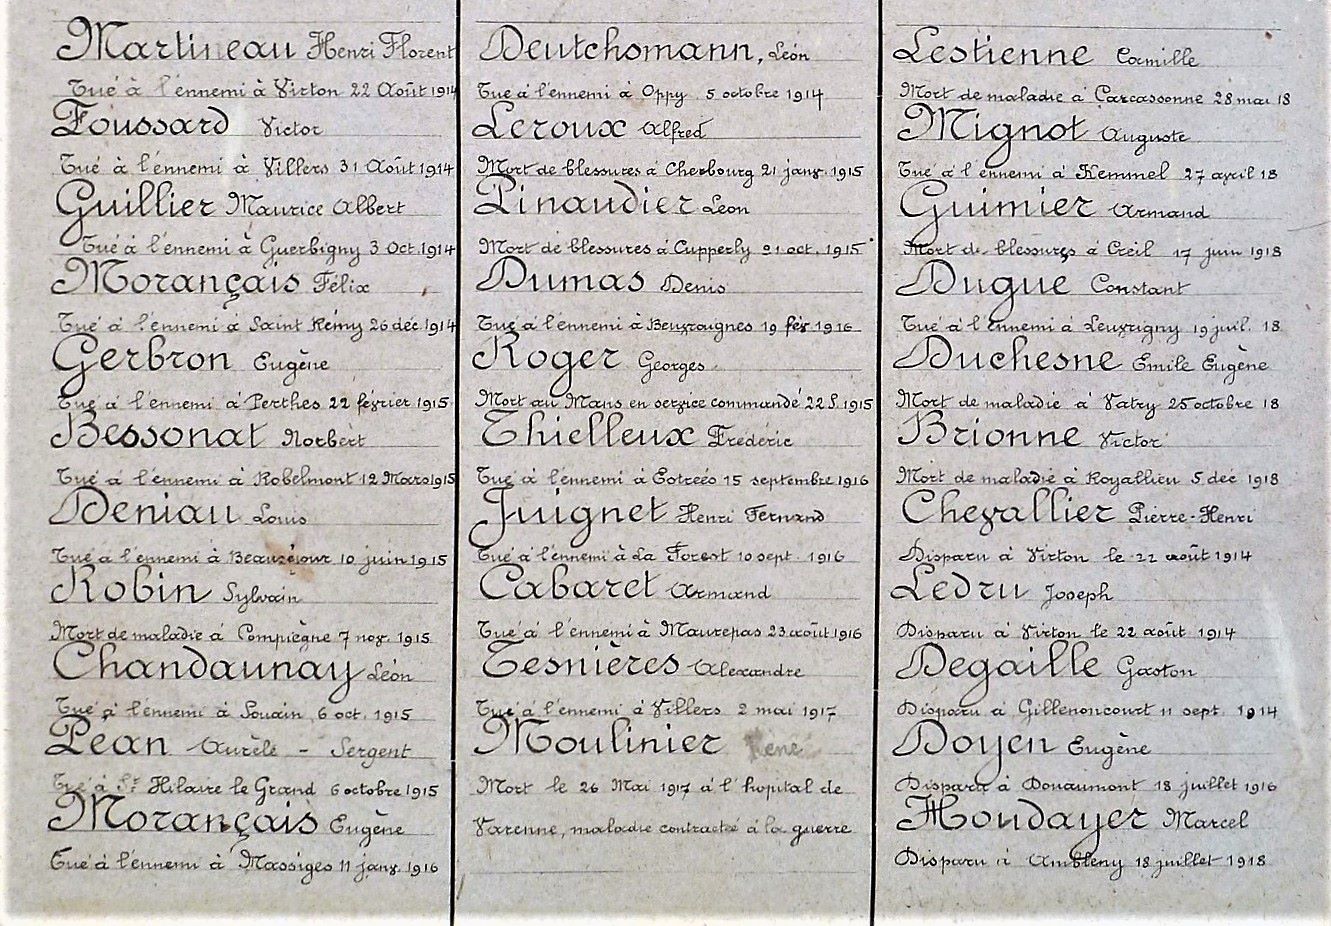 Martineau Henri Florent
Tué à l'ennemi à Virton 22 Août 1914
Foussard Victor
Tué à l'ennemi à Villers 31 Août 1914
Guillier Maurice Albert
Tué à l'ennemi à Guerbigny 3 Oct. 1914
Morançais Félix
Tué à l'ennemi à Saint Rémy 26 déc. 1914
Gerbron Eugène
Tué à l'ennemi à Perthes 22 février 1915
Bessonat Norbert
Tué à l'ennemi à Robelmont 12 Mars 1915
Deniau Louis
Tué à l'ennemi à Beauzéjour 10 juin 1915
Robin Sylvain
Mort de maladie à Compiègne 7 nov. 1915
Chandaunay Léon
Tué à l'ennemi à Souain 6 oct. 1915
Péan Aurèle - Sergent
Tué à St Hilaire le Grand 6 octobre 1915
Morançais Eugène
Tué à l'ennemi à Massiges 11 janv. 1916
Deutchsmann, Léon
Tué à l'ennemi à Oppy 5 octobre 1914
Leroux Alfred
Mort de blessures à Cherbourg 21 janv. 1915
Pinaudier Léon
Mort de blessures à Cupperly 21 oct. 1915
Dumas Denis
Tué à l'ennemi à Beuvraignes 19 fév 1916
Roger Georges
Mort au Mans en service commandé 22 S. 1915
Thielleux Frédéric
Tué à l'ennemi à Estrées 15 septembre 1916
Juignet Henri Fernand
Tué à l'ennemi à La Forest 10 sept. 1916
Cabaret Armand
Tué à l'ennemi à Maurepas 23 août 1916
Tesnières Alexandre
Tué à l'ennemi à Villers 2 mai 1917
Moulinier René
Mort le 26 Mai 1917 à l'hopital de
Varenne, maladie contracté à la guerre
Lestienne Camille
Mort de maladie à Carcassonne 28 mai 18
Mignot Auguste
Tué à l'ennemi à Kemmel 27 avril 18
Guimier Armand
Mort de blessures à Creil 17 juin 1918
Dugue Constant
Tué à l'ennemi à Leuvrigny 19 juil. 18
Duchesne Emile Eugène
Mort de maladie à Vatry 25 octobre 18
Brionne Victor
Mort de maladie à Royallieu 5 déc 1918
Chevallier Pierre-Henri
Disparu à Virton le 22 août 1914
Ledru Joseph
Disparu à Virton le 22 août 1914
Degaille Gaston
Disparu à Gillenoncourt 11 sept. 1914
Doyen Eugène
Disparu à Douaumont 18 juillet 1916
Houdayer Marcel
Disparu à Ambleny 18 juillet 1918